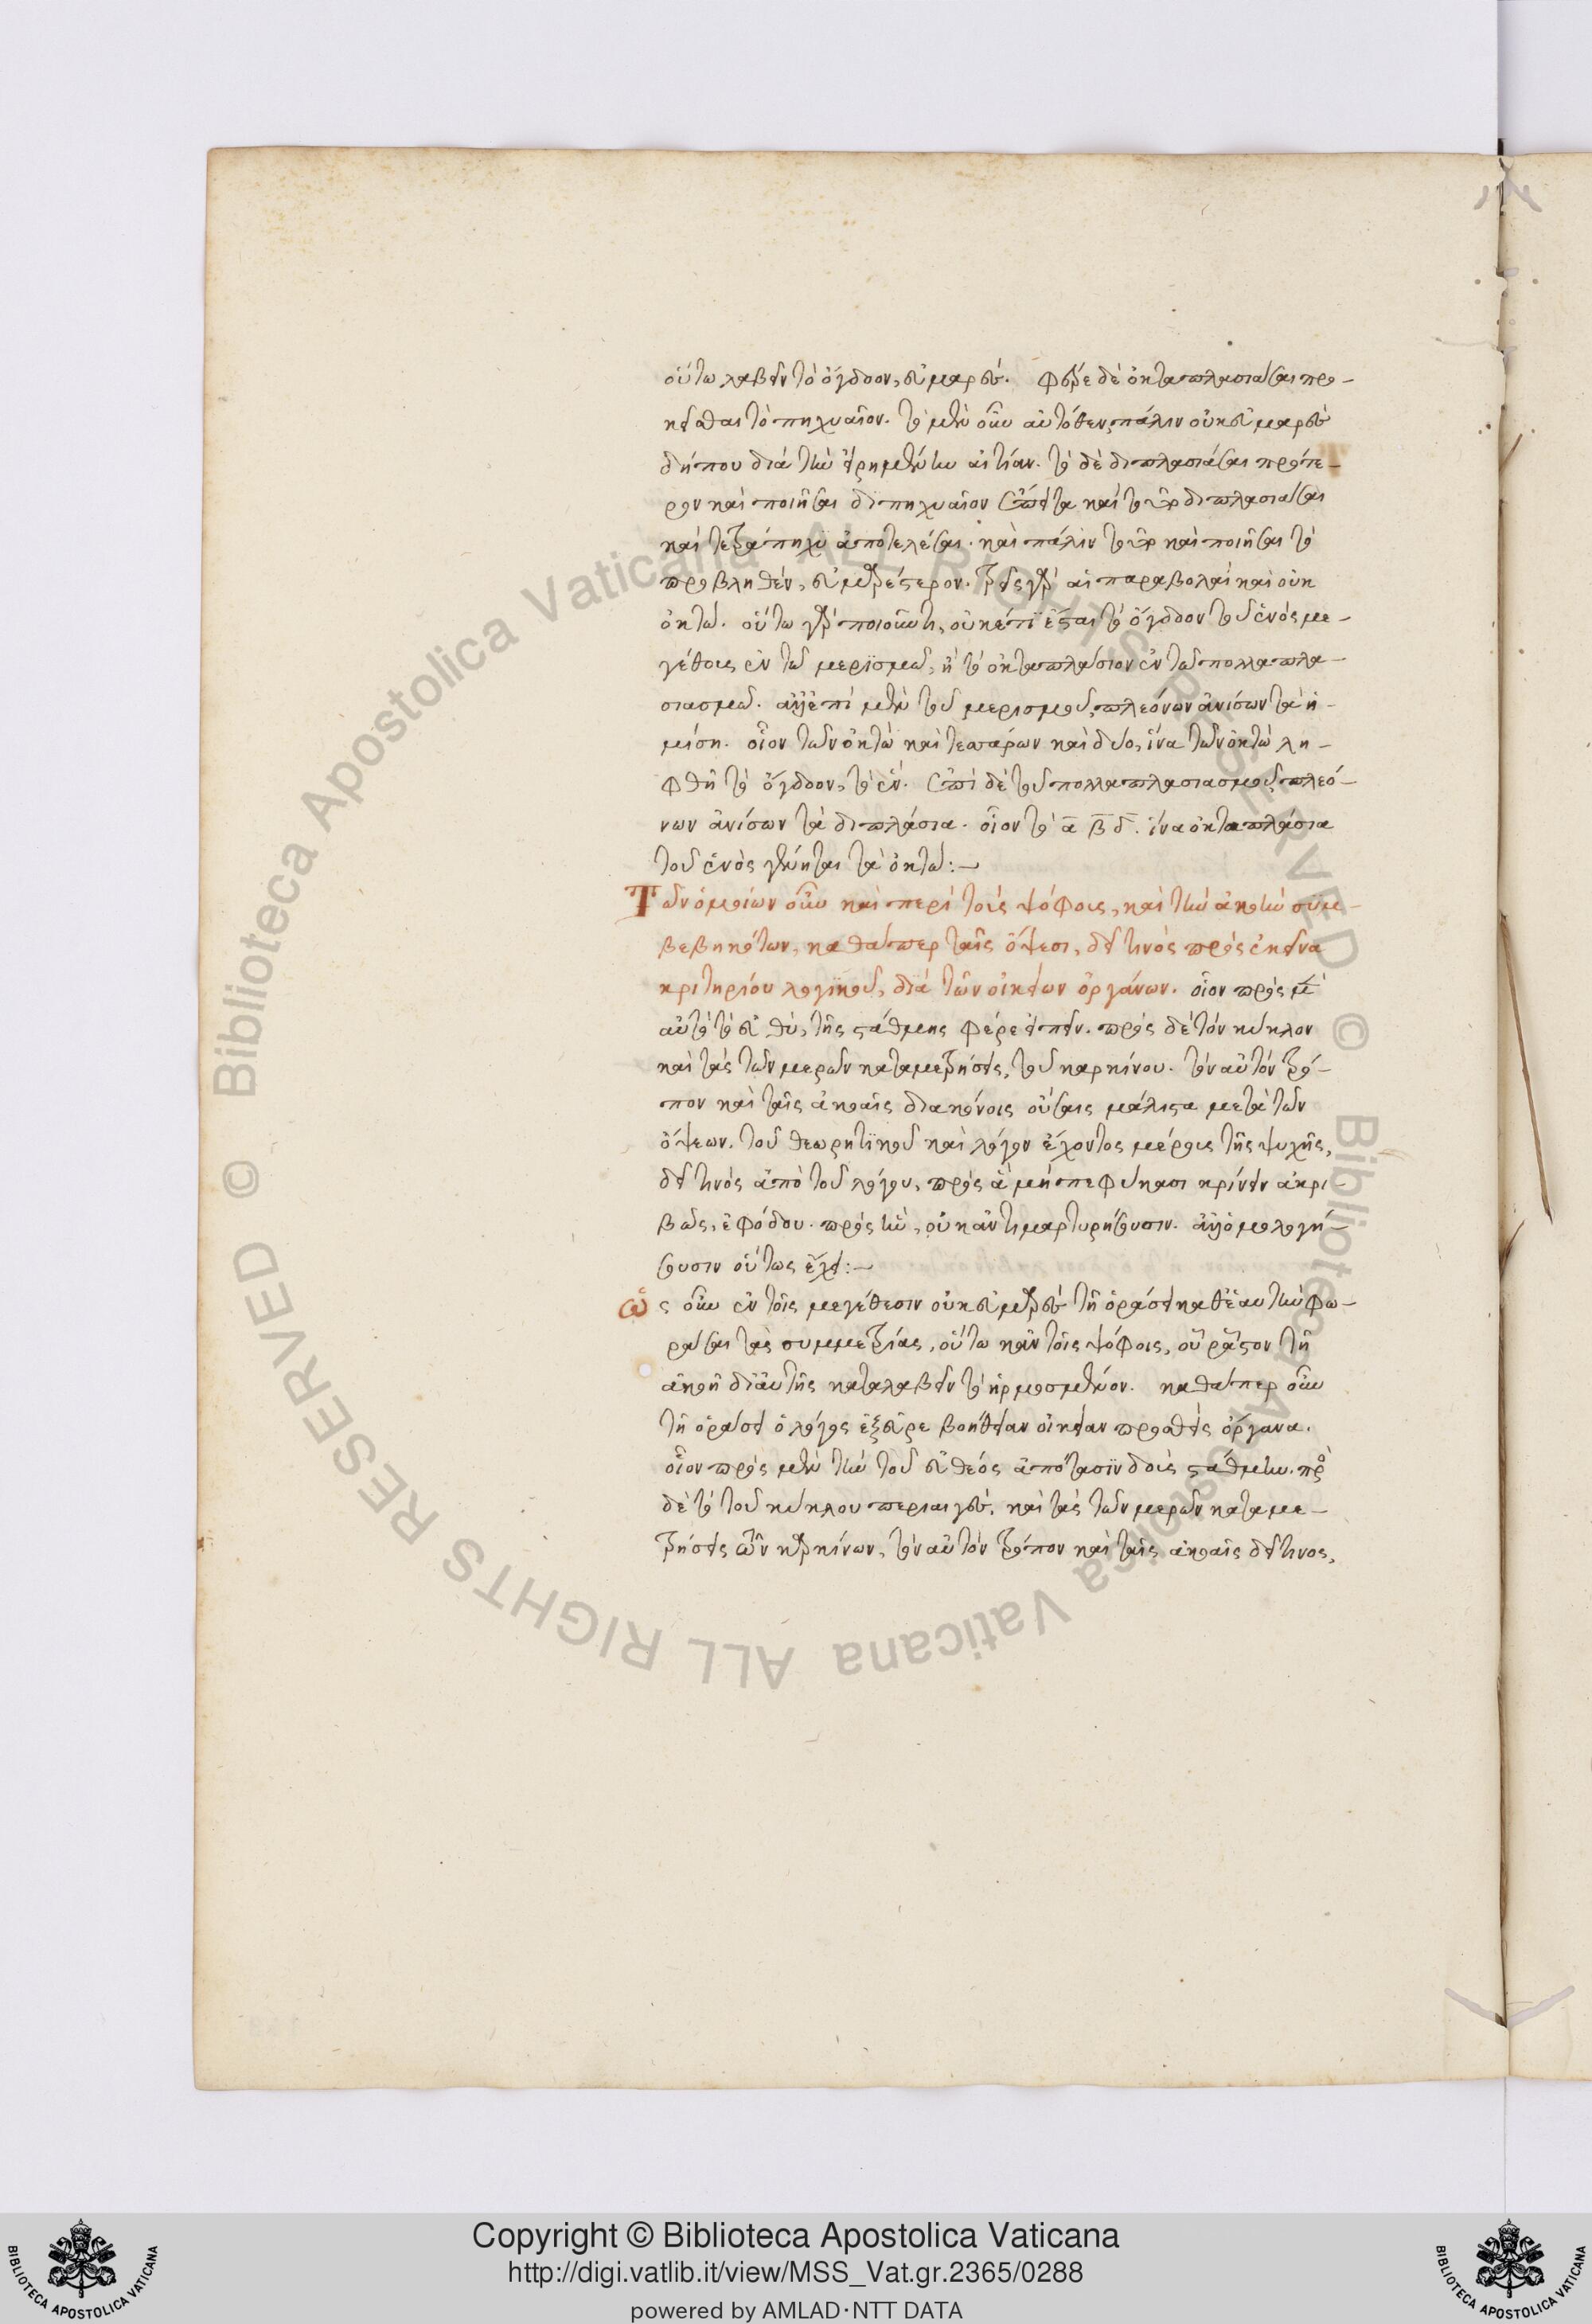 οὕτω λαβεῖν τὸ ὄγδοον, εὐμαρές. φέρε δὲ ὀκταπλασιάσαι προ-
κεῖσθαι τὸ πηχυαῖον. τὸ μὲν οὖν αὐτόθεν πάλιν οὐκ εὐμαρὲς
δήπου διὰ τὴν εἰρημένην αἰτίαν. τὸ δὲ διπλασιάσαι πρότε-
ρον καὶ ποιῆσαι διπηχυαῖον ἔπειτα καὶ τοῦτο διπλασιάσαι
καὶ τετράπηχυ ἀποτελέσαι. καὶ πάλιν τοῦτο καὶ ποιῆσαι τὸ
προβληθέν, εὐμετρέστερον. τρεῖς γὰρ αἱ παραβολαὶ καὶ οὐκ
ὀκτώ. οὕτω γὰρ ποιοῦντι, οὐκέτι ἔσται τὸ ὄγδοον τοῦ ἑνὸς με-
γέθους ἐν τῷ μερϊσμῷ, ἢ τὸ ὀκταπλάσιον ἐν τῷ πολλαπλα-
σιασμῷ. ἀλλ' ἐπὶ μὲν τοῦ μερισμοῦ πλεόνων ἀνίσων τὰ ἡ-
μίση. οἷον τῶν ὀκτὼ καὶ τεσσάρων καὶ δύο, ἵνα τῶν ὀκτὼ λη-
φθῇ τὸ ὄγδοον, τὸ ἕν. ἐπὶ δὲ τοῦ πολλαπλασιασμοῦ πλεό-
νων ἀνίσων τὰ διπλάσια. οἷον τὸ α β δ. ἵνα ὀκταπλάσια
τοῦ ἑνὸς γένηται τὰ ὀκτώ:-
Τῶν ὁμοίων οὖν καὶ περὶ τοὺς ψόφους, καὶ τὴν ἀκοὴν συμ-
βεβηκότων, καθάπερ ταῖς ὄψεσι, δεῖ τινὸς πρὸς ἐκεῖνα
κριτηρίου λογϊκοῦ, διὰ τῶν οἰκείων ὀργάνων. οἷον πρὸς μὲν
αὐτὸ τὸ εὐθὺ, τῆς στάθμης φέρε εἰπεῖν. πρὸς δὲ τὸν κύκλον
καὶ τὰς τῶν μερῶν καταμετρήσεις, τοῦ καρκίνου. τὸν αὐτὸν τρό-
πον καὶ ταῖς ἀκοαῖς διακόνοις οὔσαις μάλιστα μετὰ τῶν
ὄψεων. τοῦ θεωρητϊκοῦ καὶ λόγον ἔχοντος μέρους τῆς ψυχῆς,
δεῖ τινὸς ἀπὸ τοῦ λόγου, πρὸς ἃ μὴ πεφύκασι κρίνειν ἀκρι-
βῶς, ἐφόδου. πρὸς ἣν, οὐκ ἀντιμαρτυρήσουσιν. ἀλλ' ὁμολογή-
σουσιν οὕτως ἔχει:-
ὡς οὖν ἐν τοῖς μεγέθεσιν οὐκ εὐμαρὲς τῇ ὁράσει καθ' ἑαυτὴν φω-
ρᾶσαι τὰς συμμετρίας, οὕτω κἀν τοῖς ψόφοις, οὐ ῥᾷστον τῇ
ἀκοῇ δι' αὐτῆς καταλαβεῖν τὸ ἡρμοσμένον. καθάπερ οὖν
τῇ ὁράσει ὁ λόγος ἐξεῦρε βοήθειαν οἰκείαν προσθεὶς ὄργανα.
οἷον πρὸς μὲν τὴν τοῦ εὐθέος ἀπότασϊν δοὺς στάθμην. πρὸς
δὲ τὸ τοῦ κύκλου περιαιγὲς, καὶ τὰς τῶν μερῶν καταμε-
τρήσεις καρκίνων, τὸν αὐτὸν τρόπον καὶ ταῖς ἀκοαῖς δεῖ τινος,
Copyright © Biblioteca Apostolica Vaticana
http://digi.vatlib.it/view/MSS_Vat.gr.2365/0288
powered by AMLAD·NTT DATA
BIBLIOTECA APOSTOLICA VATICANA
BIBLIOTECA APOSTOLICA VATICANA
© Biblioteca Apostolica Vaticana ALL RIGHTS RESERVED
© Biblioteca Apostolica Vaticana ALL RIGHTS RESERVED